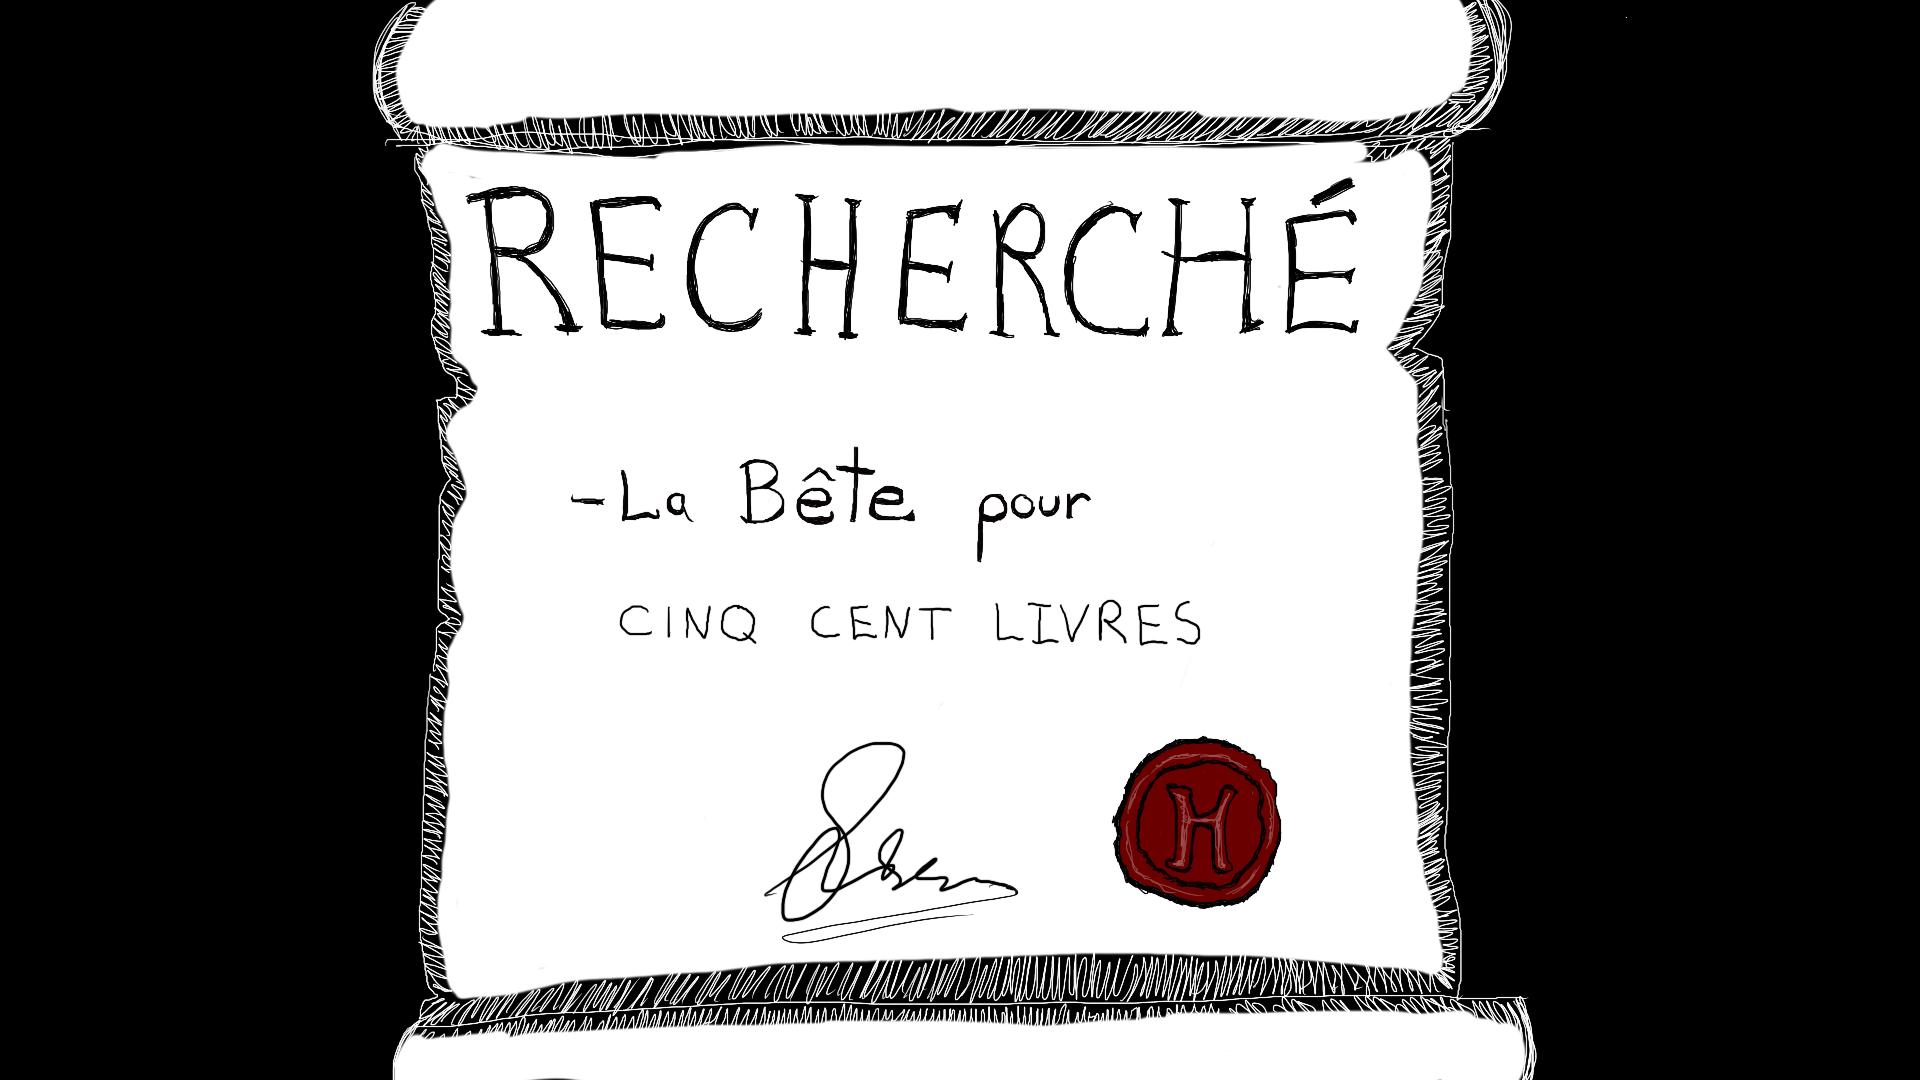 RECHERCHÉ
-La Bête pour
CINQ CENT LIVRES
H